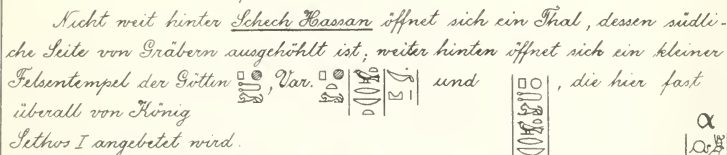 Nicht weit hinter Schech Hassan öffnet sich ein Thal, dessen südli-
che Seite von Gräbern ausgehöhlt ist; weiter hinten öffnet sich ein kleiner
Felsentempel der Göttin , Var. und , die hier fast
überall von König
Sethos I angebetet wird.